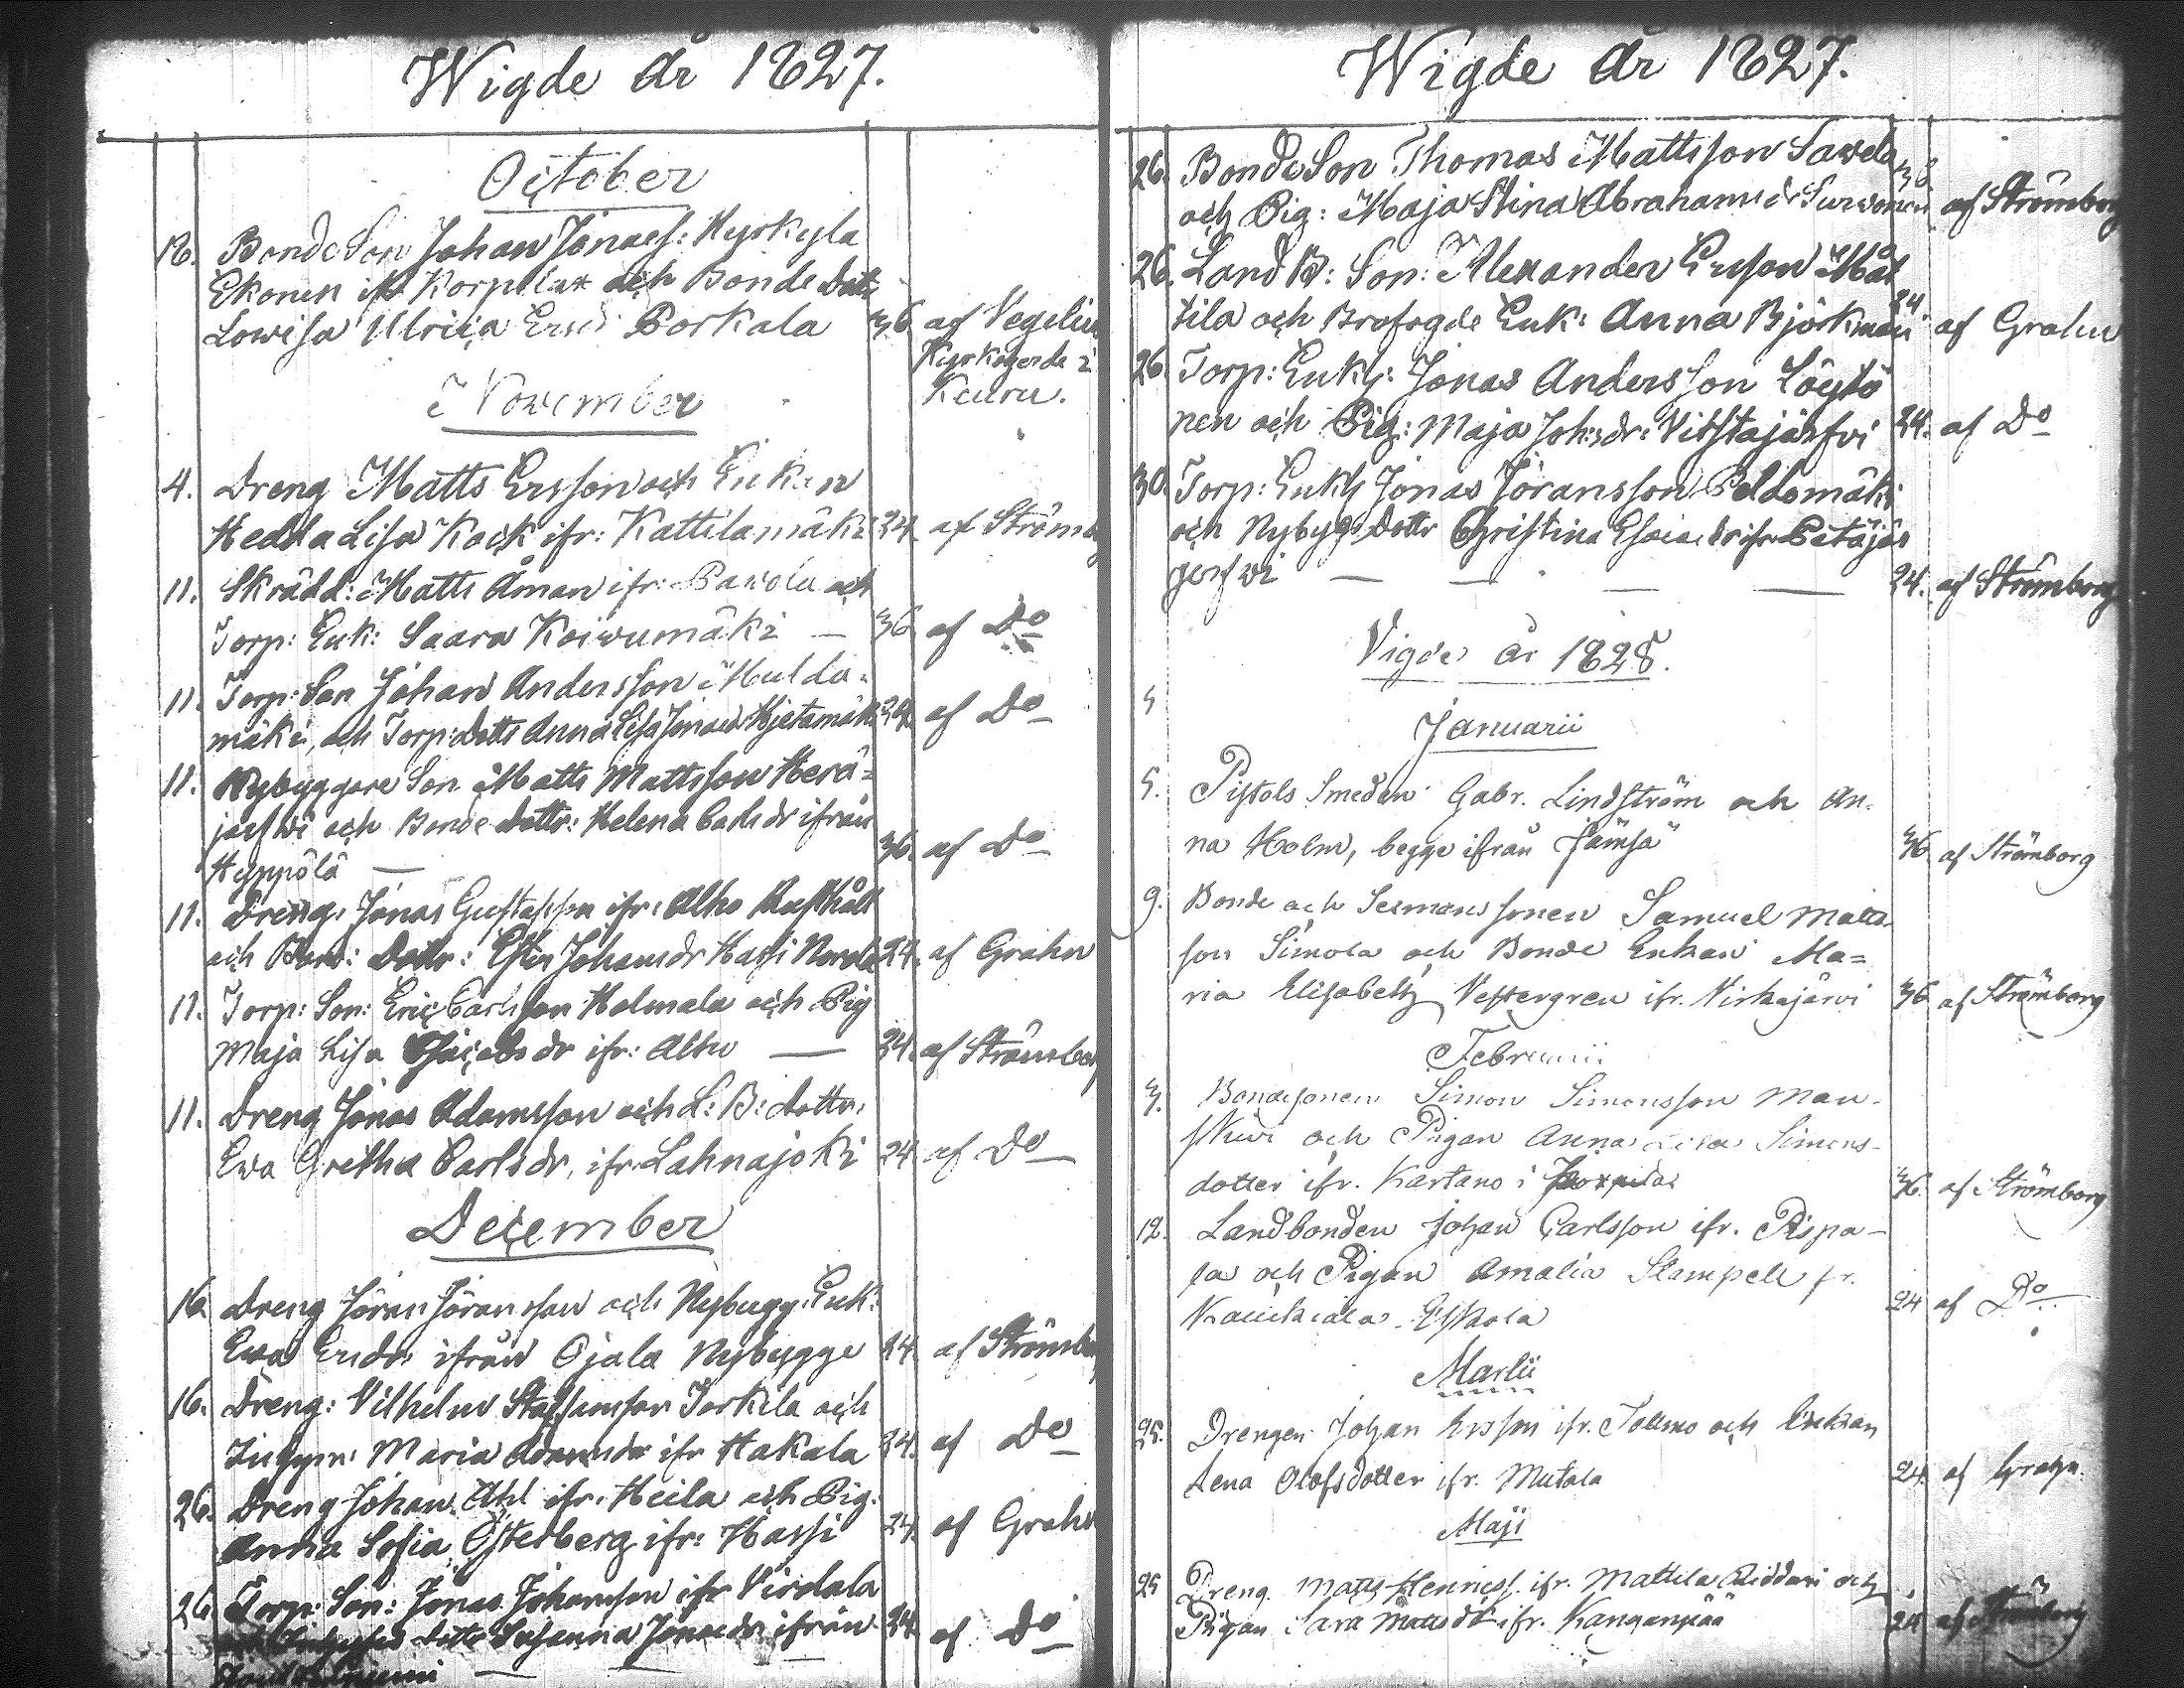 Wigde År 1827.
October
18. Bonde Son Johan Jonaes: Kyrkyla
Ekonen ifr Korpilax och Bonde Dott:
Lowisa Ulrica Ersd: Porkala 36 af Vegelius
Kyrkoherde i
Keuru.
November
4. Dreng Matts Ersson och Enkan
Hedda Lisa Kock ifr: Kattilamäki 24. af Strömb
11. Skrädd: Matts Åman ifr: Pawola och
Torp: Enk: Saara Koiwumäki — 36 af Do
11. Torp: Son Johan Andersson Mulda=
mäki, och Torp: Dottr Anna Lisa Jonaed Hietamäki 24. af Do
11. Nybyggare Son Matts Mattsson Herä=
jerfwi och Bonde Dottr: Helena Carlsdr ifrån
Hyppölä — 36. af Do
11. Dreng: Jonas Gustafsson ifr: Alho Rusthåll
och Bond: Dottr: Ester Johansdr Hassi Norola 24. af Grahn
11. Torp: Son: Eric Carlsson Holmala och Pig
Maja Lisa dr ifr: Alho — 24. af Strömborg
11. Dreng Jonas Adamsson och L: B: Dottr:
Ewa Gretha Carlsdr, ifr: Lahnajoki 24 af Do
December
16. Dreng Jöran Jöransson och Nybygg: Enk:
Ewa Ersdr ifrån Ojala Nybygge 24. af Strömbo
16. Dreng: Vilhelm Staffansson Torkila och
Maria Adamsdr ifr Hakala 24. af Do
26. Dreng Johan Åhl ifr: Heila och Pig:
Anna Sofia Österberg ifr: Hassi 24. af Grahn
26. Torp: Son: Jonas Johansson ifr Virdala
Dottr Susanna Jonaedr ifrån 24. af Do
Wigde År 1827.
26. Bonde Son Thomas Mattsson Sawela 36
och Pig: Maja Stina Abrahamsdr Surwonen af Strömborg
26. Land B: Son: Alexander Ersson Mat
tila och Brofogde Enk: Anna Björkman 24 af Grahn
26. Torp: Enkl: Jonas Andersson Löytö
nen och Pig: Maja Joh:dr: Vitstajärfvi 24. af Do
30. Torp: Enkl Jonas Jöransson Peldomäki
och Nybygg Dottr Christina Esaiaedr ifr Petäjä
jerfwi — — — — 24. af Strömborg
Vigde år 1828.
Januarii
5. Pistols Smeden Gabr. Lindström och An=
na Holm, begge ifrån Jämsä 36 af Strömborg
9. Bonde och Sexmans sonen Samuel Matts
son Simola och Bonde Enkan Ma=
ria Elisabeth Vestergren ifr. Virkajärvi 36 af Strömborg
Februarii
3. Bondesonen Simon Simonsson Man=
skivi och Pigan Anna Lisa Simons=
dotter ifr. Kartano i Jorpilax 36. af Strömborg
12. Landbonden Johan Carlsson ifr. Pispa=
la och Pigan Amalia Stampell fr.
Kauckiala Eskola 24 af Do
Martii
25. Drengen Johan Ersson ifr. Tollmo och Enkan
Lena Olofsdotter ifr. Mutola 24. af Grahn.
Maji
25 Dreng. Matts Henricss. ifr. Mattila Riddari och
Pigan Sara Mattsdr ifr. Kanganpää 24 af Strömborg